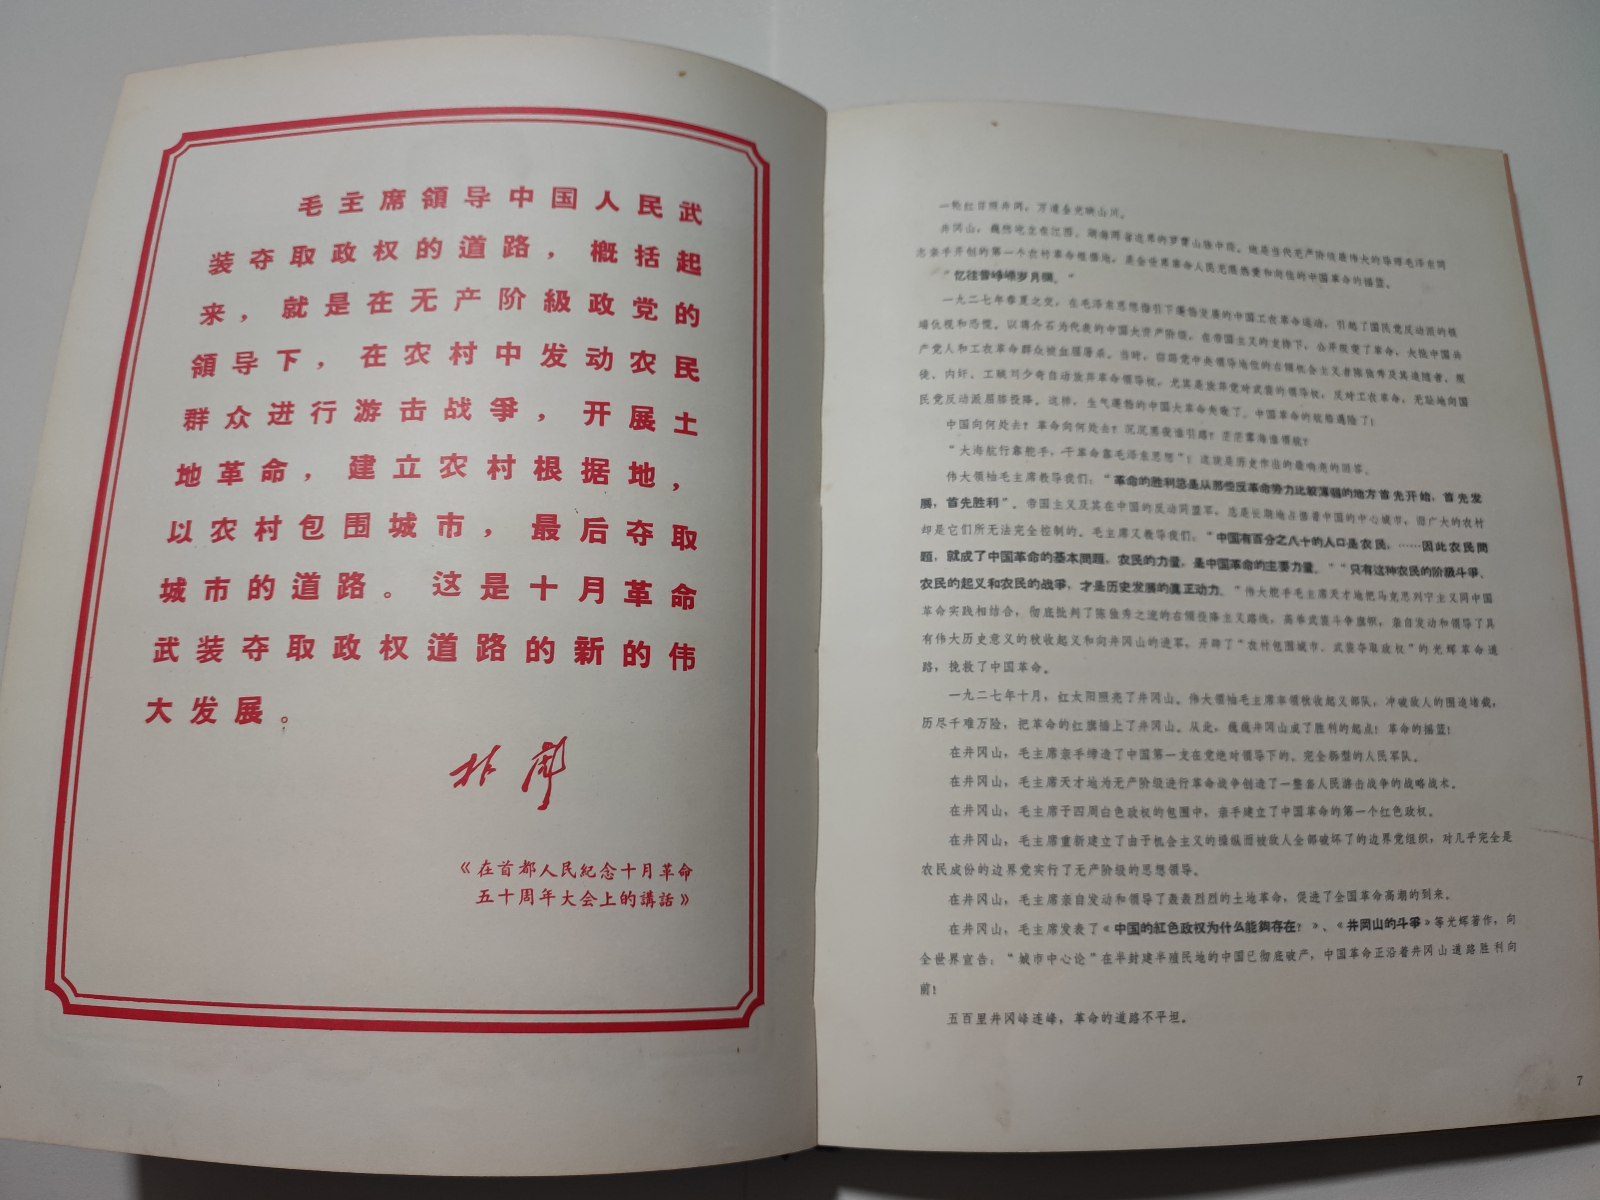 毛主席領导中国人民武
装夺取政权的道路，概括起
来，就是在无产阶級政党的
領导下，在农村中发动农民
群众进行游击战爭，开展土
地革命，建立农村根据地，
以农村包围城市，最后夺取
城市的道路。这是十月革命
武装夺取政权道路的新的伟
大发展。
林彪
《在首都人民紀念十月革命
五十周年大会上的講話》
一轮红日照井冈，万道金光映山川。
井冈山，巍然屹立在江西、湖南两省边界的罗霄山脉中段。她是当代无产阶级最伟大的导师毛泽东同
志亲手开创的第一个农村革命根据地，是全世界革命人民无限热爱和向往的中国革命的摇篮。
“忆往昔峥嵘岁月稠。”
一九二七年春夏之交，在毛泽东思想指引下蓬勃发展的中国工农革命运动，引起了国民党反动派的极
端仇视和恐慌。以蒋介石为代表的中国大资产阶级，在帝国主义的支持下，公开叛变了革命，大批中国共
产党人和工农革命群众被血腥屠杀。当时，窃踞党中央领导地位的右倾机会主义者陈独秀及其追随者、叛
徒、内奸、工贼刘少奇自动放弃革命领导权，尤其是放弃党对武装的领导权，反对工农革命，无耻地向国
民党反动派屈膝投降。这样，生气蓬勃的中国大革命失败了。中国革命的航船遇险了！
中国向何处去？革命向何处去？沉沉黑夜谁引路？茫茫雾海谁领航？
“大海航行靠舵手，干革命靠毛泽东思想”！这就是历史作出的最响亮的回答。
伟大领袖毛主席教导我们：“革命的胜利总是从那些反革命势力比較薄弱的地方首先开始，首先发
展，首先胜利”。帝国主义及其在中国的反动同盟军，总是长期地占据着中国的中心城市，而广大的农村
却是它们所无法完全控制的。毛主席又教导我们：“中国有百分之八十的人口是农民，……因此农民問
題，就成了中国革命的基本問題，农民的力量，是中国革命的主要力量。”“只有这种农民的阶級斗爭、
农民的起义和农民的战爭，才是历史发展的真正动力。”伟大舵手毛主席天才地把马克思列宁主义同中国
革命实践相结合，彻底批判了陈独秀之流的右倾投降主义路线，高举武装斗争旗帜，亲自发动和领导了具
有伟大历史意义的秋收起义和向井冈山的进军，开辟了“农村包围城市、武装夺取政权”的光辉革命道
路，挽救了中国革命。
一九二七年十月，红太阳照亮了井冈山。伟大领袖毛主席率领秋收起义部队，冲破敌人的围追堵截，
历尽千难万险，把革命的红旗插上了井冈山。从此，巍巍井冈山成了胜利的起点！革命的摇篮！
在井冈山，毛主席亲手缔造了中国第一支在党绝对领导下的、完全新型的人民军队。
在井冈山，毛主席天才地为无产阶级进行革命战争创造了一整套人民游击战争的战略战术。
在井冈山，毛主席于四周白色政权的包围中，亲手建立了中国革命的第一个红色政权。
在井冈山，毛主席重新建立了由于机会主义的操纵而被敌人全部破坏了的边界党组织，对几乎完全是
农民成份的边界党实行了无产阶级的思想领导。
在井冈山，毛主席亲自发动和领导了轰轰烈烈的土地革命，促进了全国革命高潮的到来。
在井冈山，毛主席发表了《中国的紅色政权为什么能夠存在？》、《井冈山的斗爭》等光辉著作，向
全世界宣告：“城市中心论”在半封建半殖民地的中国已彻底破产，中国革命正沿着井冈山道路胜利向
前！
五百里井冈峰连峰，革命的道路不平坦。
7